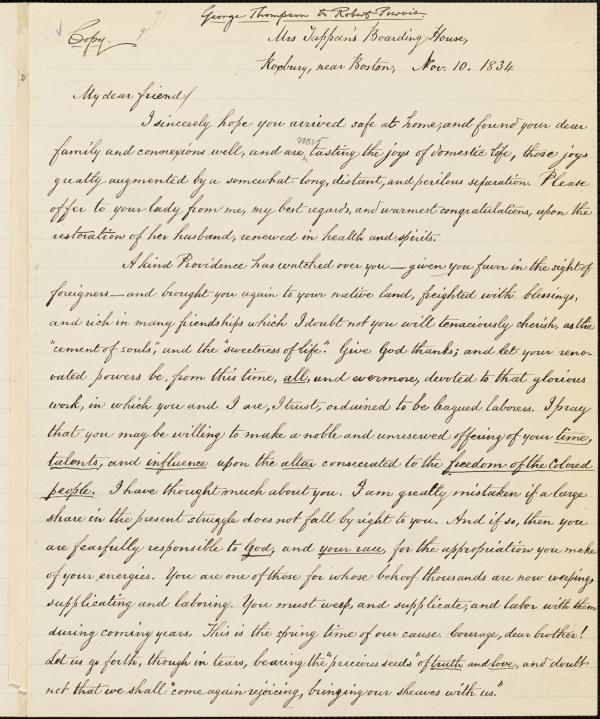 George Thompson to Robert Purvis.
Copy
Mrs Tappan's Boarding House,
Roxbury, near Boston, Nov. 10. 1834
My dear friend/
I sincerely hope you arrived safe at home, and found your dear
now
family and connexions well, and are tasting the joys of domestic life, those joys
greatly augmented by a somewhat long, distant, and perilous separation. Please
offer to your lady from me, my best regards, and warmest congratulations, upon the
restoration of her husband, renewed in health and spirits.
A kind Providence has watched over you — given you favr in the sight of
foreigners — and brought you again to your native land, freighted with blessings,
and rich in many friendships which I doubt not you will tenaciously cherish, as the
"cement of souls", and the "sweetness of life". Give God thanks; and let your reno-
vated powers be, from this time, all, and evermore, devoted to that glorious
work, in which you and I are, I trust, ordained to be leagued laborers. I pray
that you may be willing to make a noble and unreserved offering of your time,
talents, and influence upon the altar consecrated to the freedom of the colored
people. I have thought much about you. I am greatly mistaken if a large
share in the present struggle does not fall by right to you. And if so, then you
are fearfully responsible to God, and your race, for the appropriation you make
of your energies. You are one of those for whose behoof thousands are now weeping,
supplicating and laboring. You must weep, and supplicate, and labor with them
during coming years. This is the spring time of our cause. Courage, dear brother!
Let us go forth, though in tears, bearing the "precious seeds" of truth and love, and doubt
not that we shall "come again rejoicing, bringing our sheaves with us."